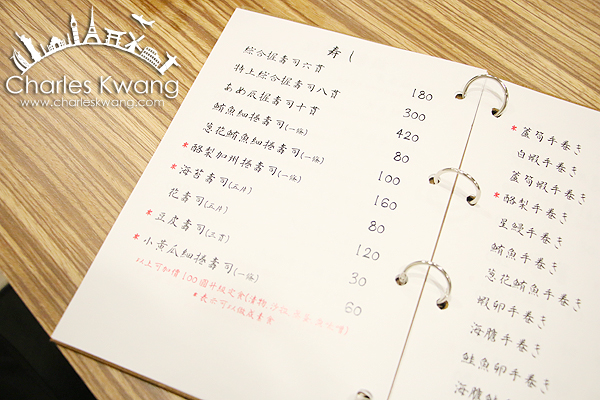 Charles Kwang
www.charleskwang.com
寿し
綜合握壽司六貫 180
特上綜合握壽司八貫 300
あめ瓜握壽司十貫 420
鮪魚細捲壽司(一條) 80
蔥花鮪魚細捲壽司(一條) 100
*酪梨加州捲壽司(一條) 160
*海苔壽司(三片) 80
花壽司(三片) 120
*豆皮壽司(三貫) 30
*小黃瓜細捲壽司(一條) 60
以上可加價100圓升級定食(漬物,沙拉,
*表示可以做成素食
*蘆筍手巻き
白蝦手巻き
蘆筍蝦手巻き
*酪梨手巻き
星鰻手巻き
鮪魚手巻き
蔥花鮪魚手巻き
蝦卵手巻き
海膽手巻き
鮭魚卵手巻き
海膽鮭